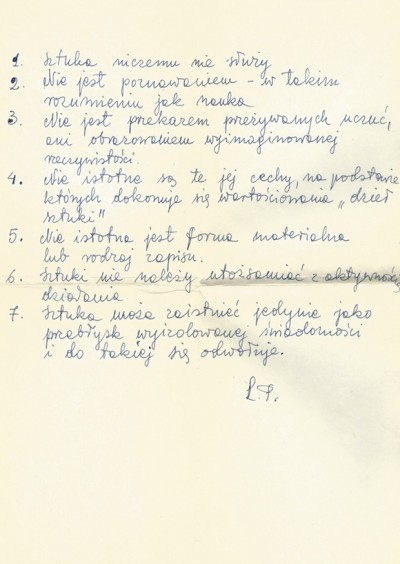 1. Sztuka niczemu nie służy
2. Nie jest poznawaniem – w takim
rozumieniu jak nauka
3. Nie jest przekazem przeżywanych uczuć,
ani obrazowaniem wyimaginowanej
rzeczywistości.
4. Nie istotne są te jej cechy, na podstawie
których dokonuje się wartościowania „dzieł
sztuki”
5. Nie istotna jest forma materialna
lub rodzaj zapisu.
6. Sztuki nie należy utożsamiać z aktywnością
działania
7. Sztuka może zaistnieć jedynie jako
przebłysk wyizolowanej świadomości
i do takiej się odwołuje.